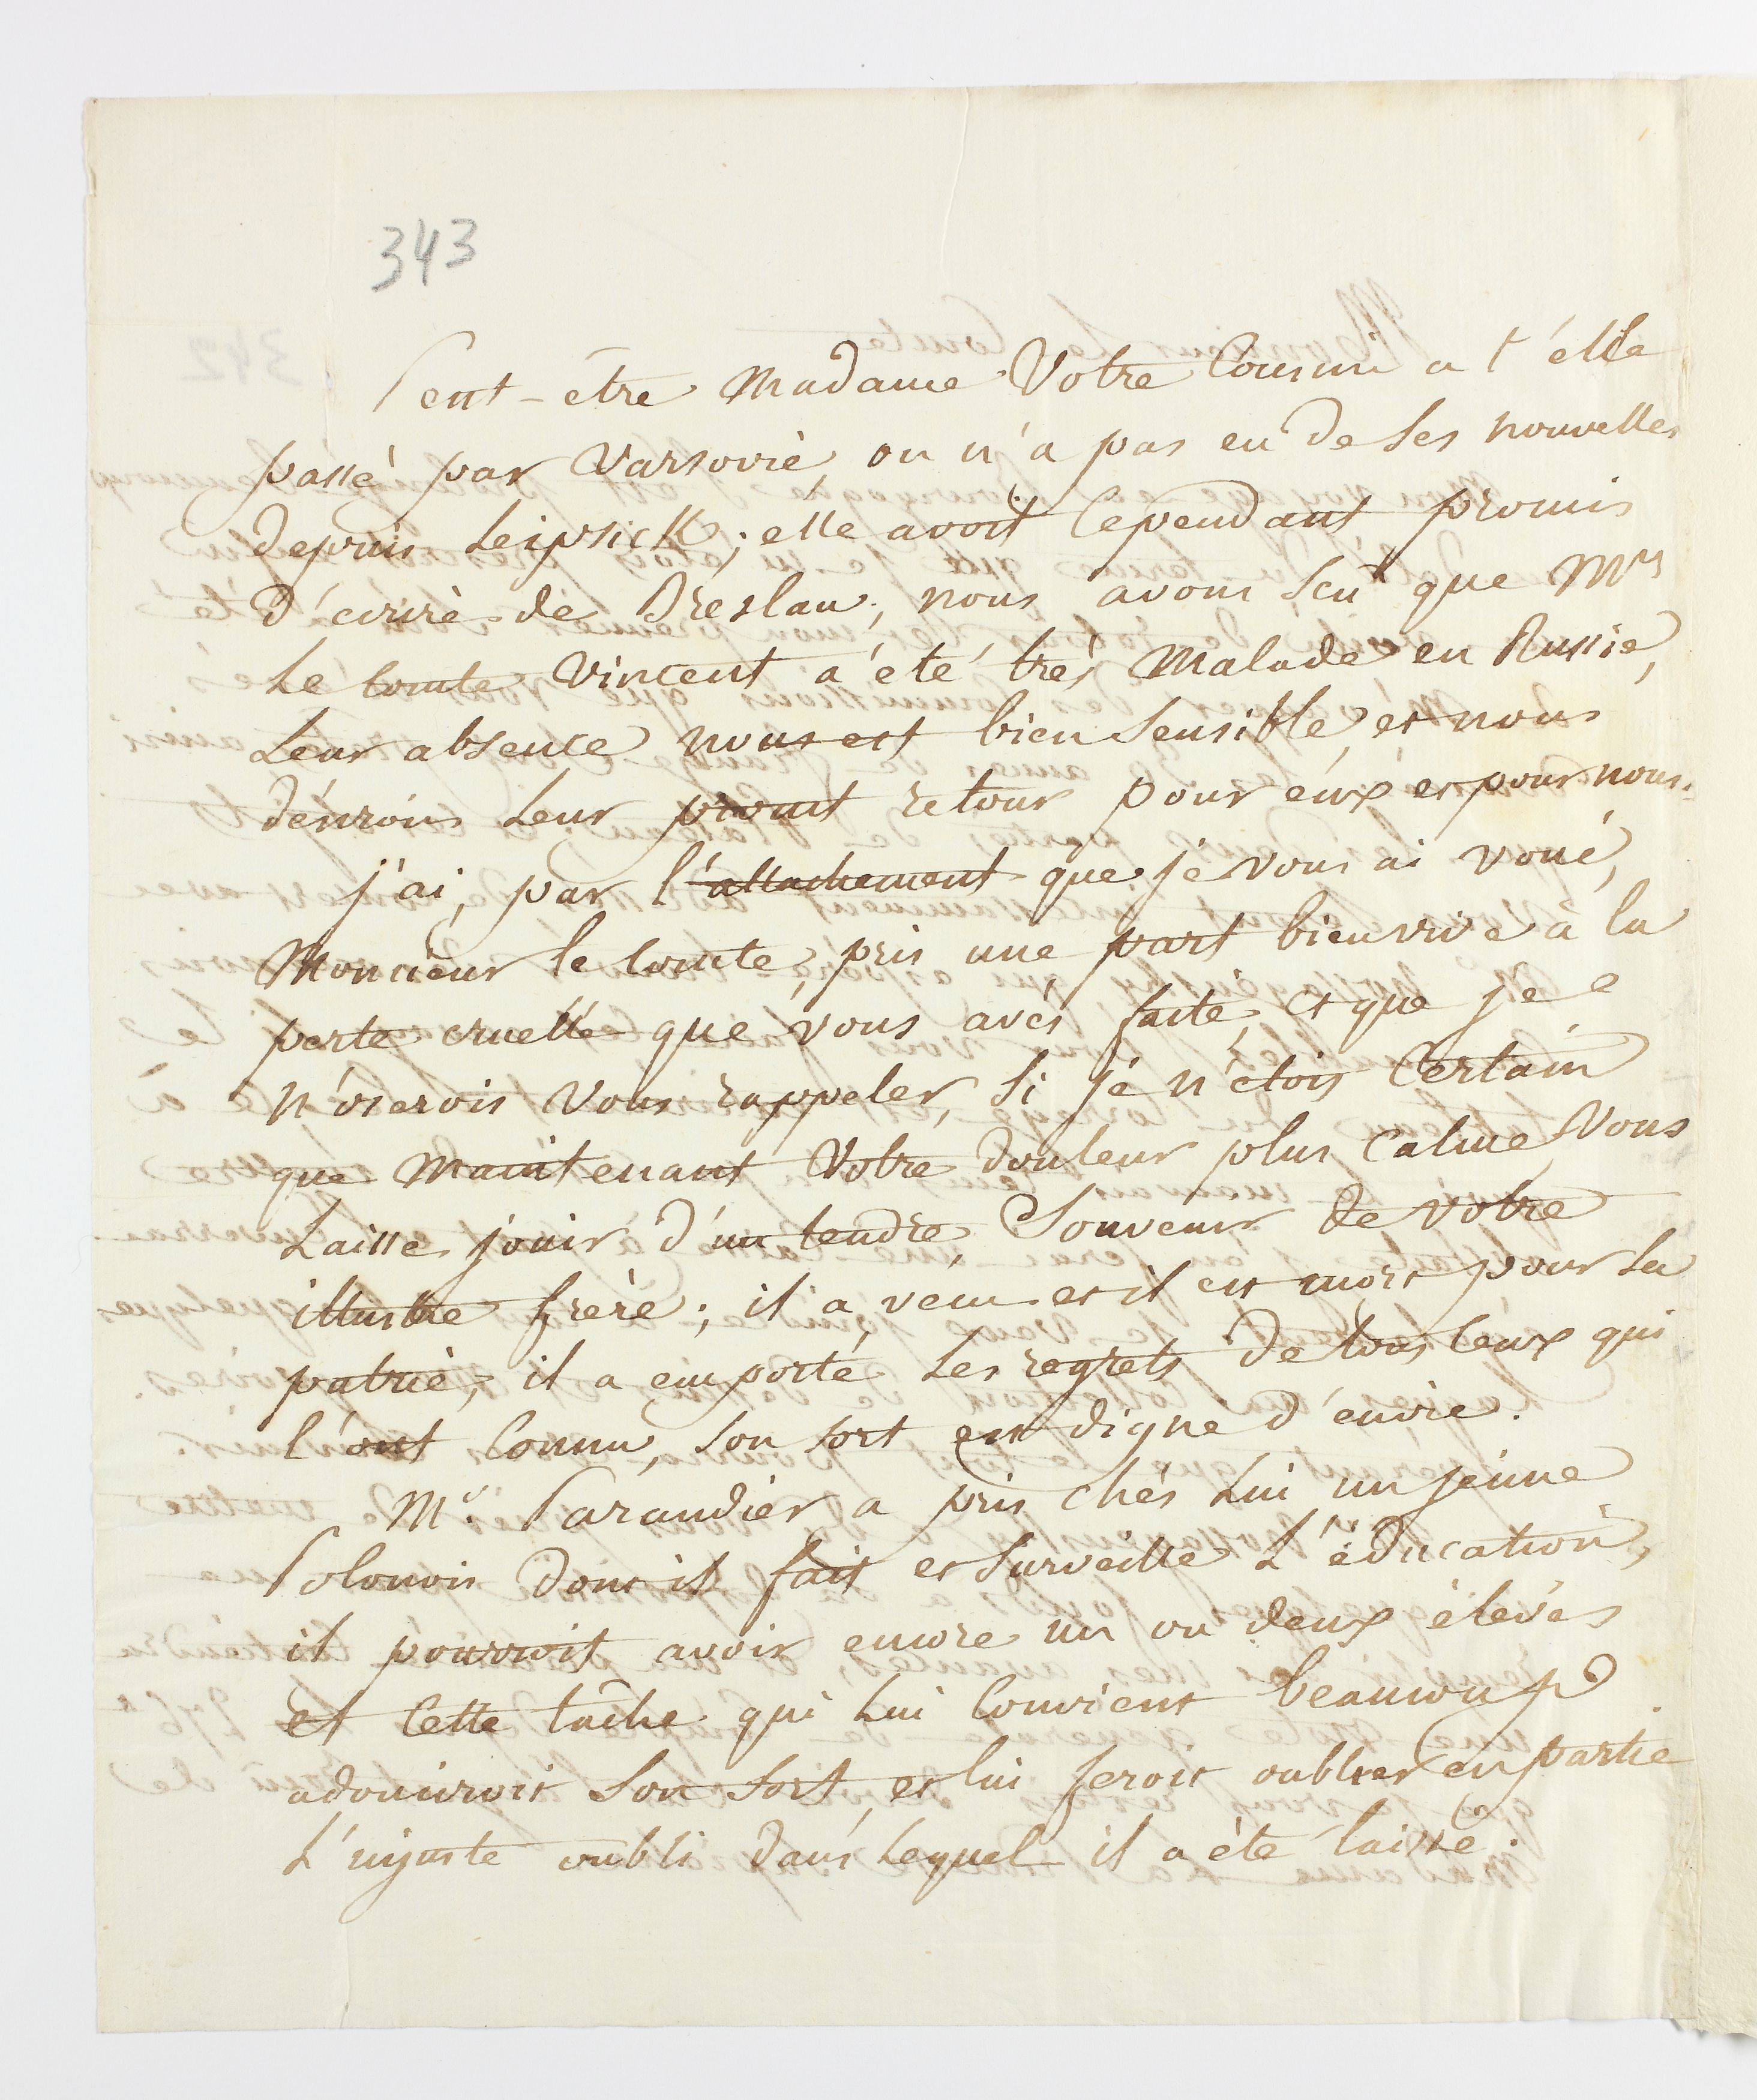 343
Peut-être Madame Votre Cousine a t'elle
passé par Varsovie, on n'a pas eu de ses nouvelles
depuis Leipsick; elle avoit Cependant promis
d'ecrire de Breslau; nous avons sçu que Mr
Le Comte Vincent a été très Malade en Russie,
Leur absence nous est bien Sensible, et nous
désirons Leur promt retour pour eux et pour nous.
j'ai, par l'attachement que je vous ai voué,
Monsieur le Comte, pris une part bien vive à la
perte cruelle que vous avés faite, et que je
n'oserois Vous rappeler, Si je n'étois Certain
que Maintenant Votre douleur plus Calme Vous
Laisse jouir d'un tendre Souvenir de votre
illustre frère; il a vécu et il est mort pour Sa
patrie, il a emporté Les regrets de tous Ceux qui
l'ont Connu, Son Sort est digne d'envie.
Mr. Parandier a pris chés Lui un jeune
Polonois dont il fait et Surveille L'éducation,
il pourroit avoir encore un ou deux élevés
et Cette tâche qui Lui Convient beaucoup
adouciroit Son Sort, et lui feroit oublier en partie
L'injuste oubli dans Lequel il a été laissé.